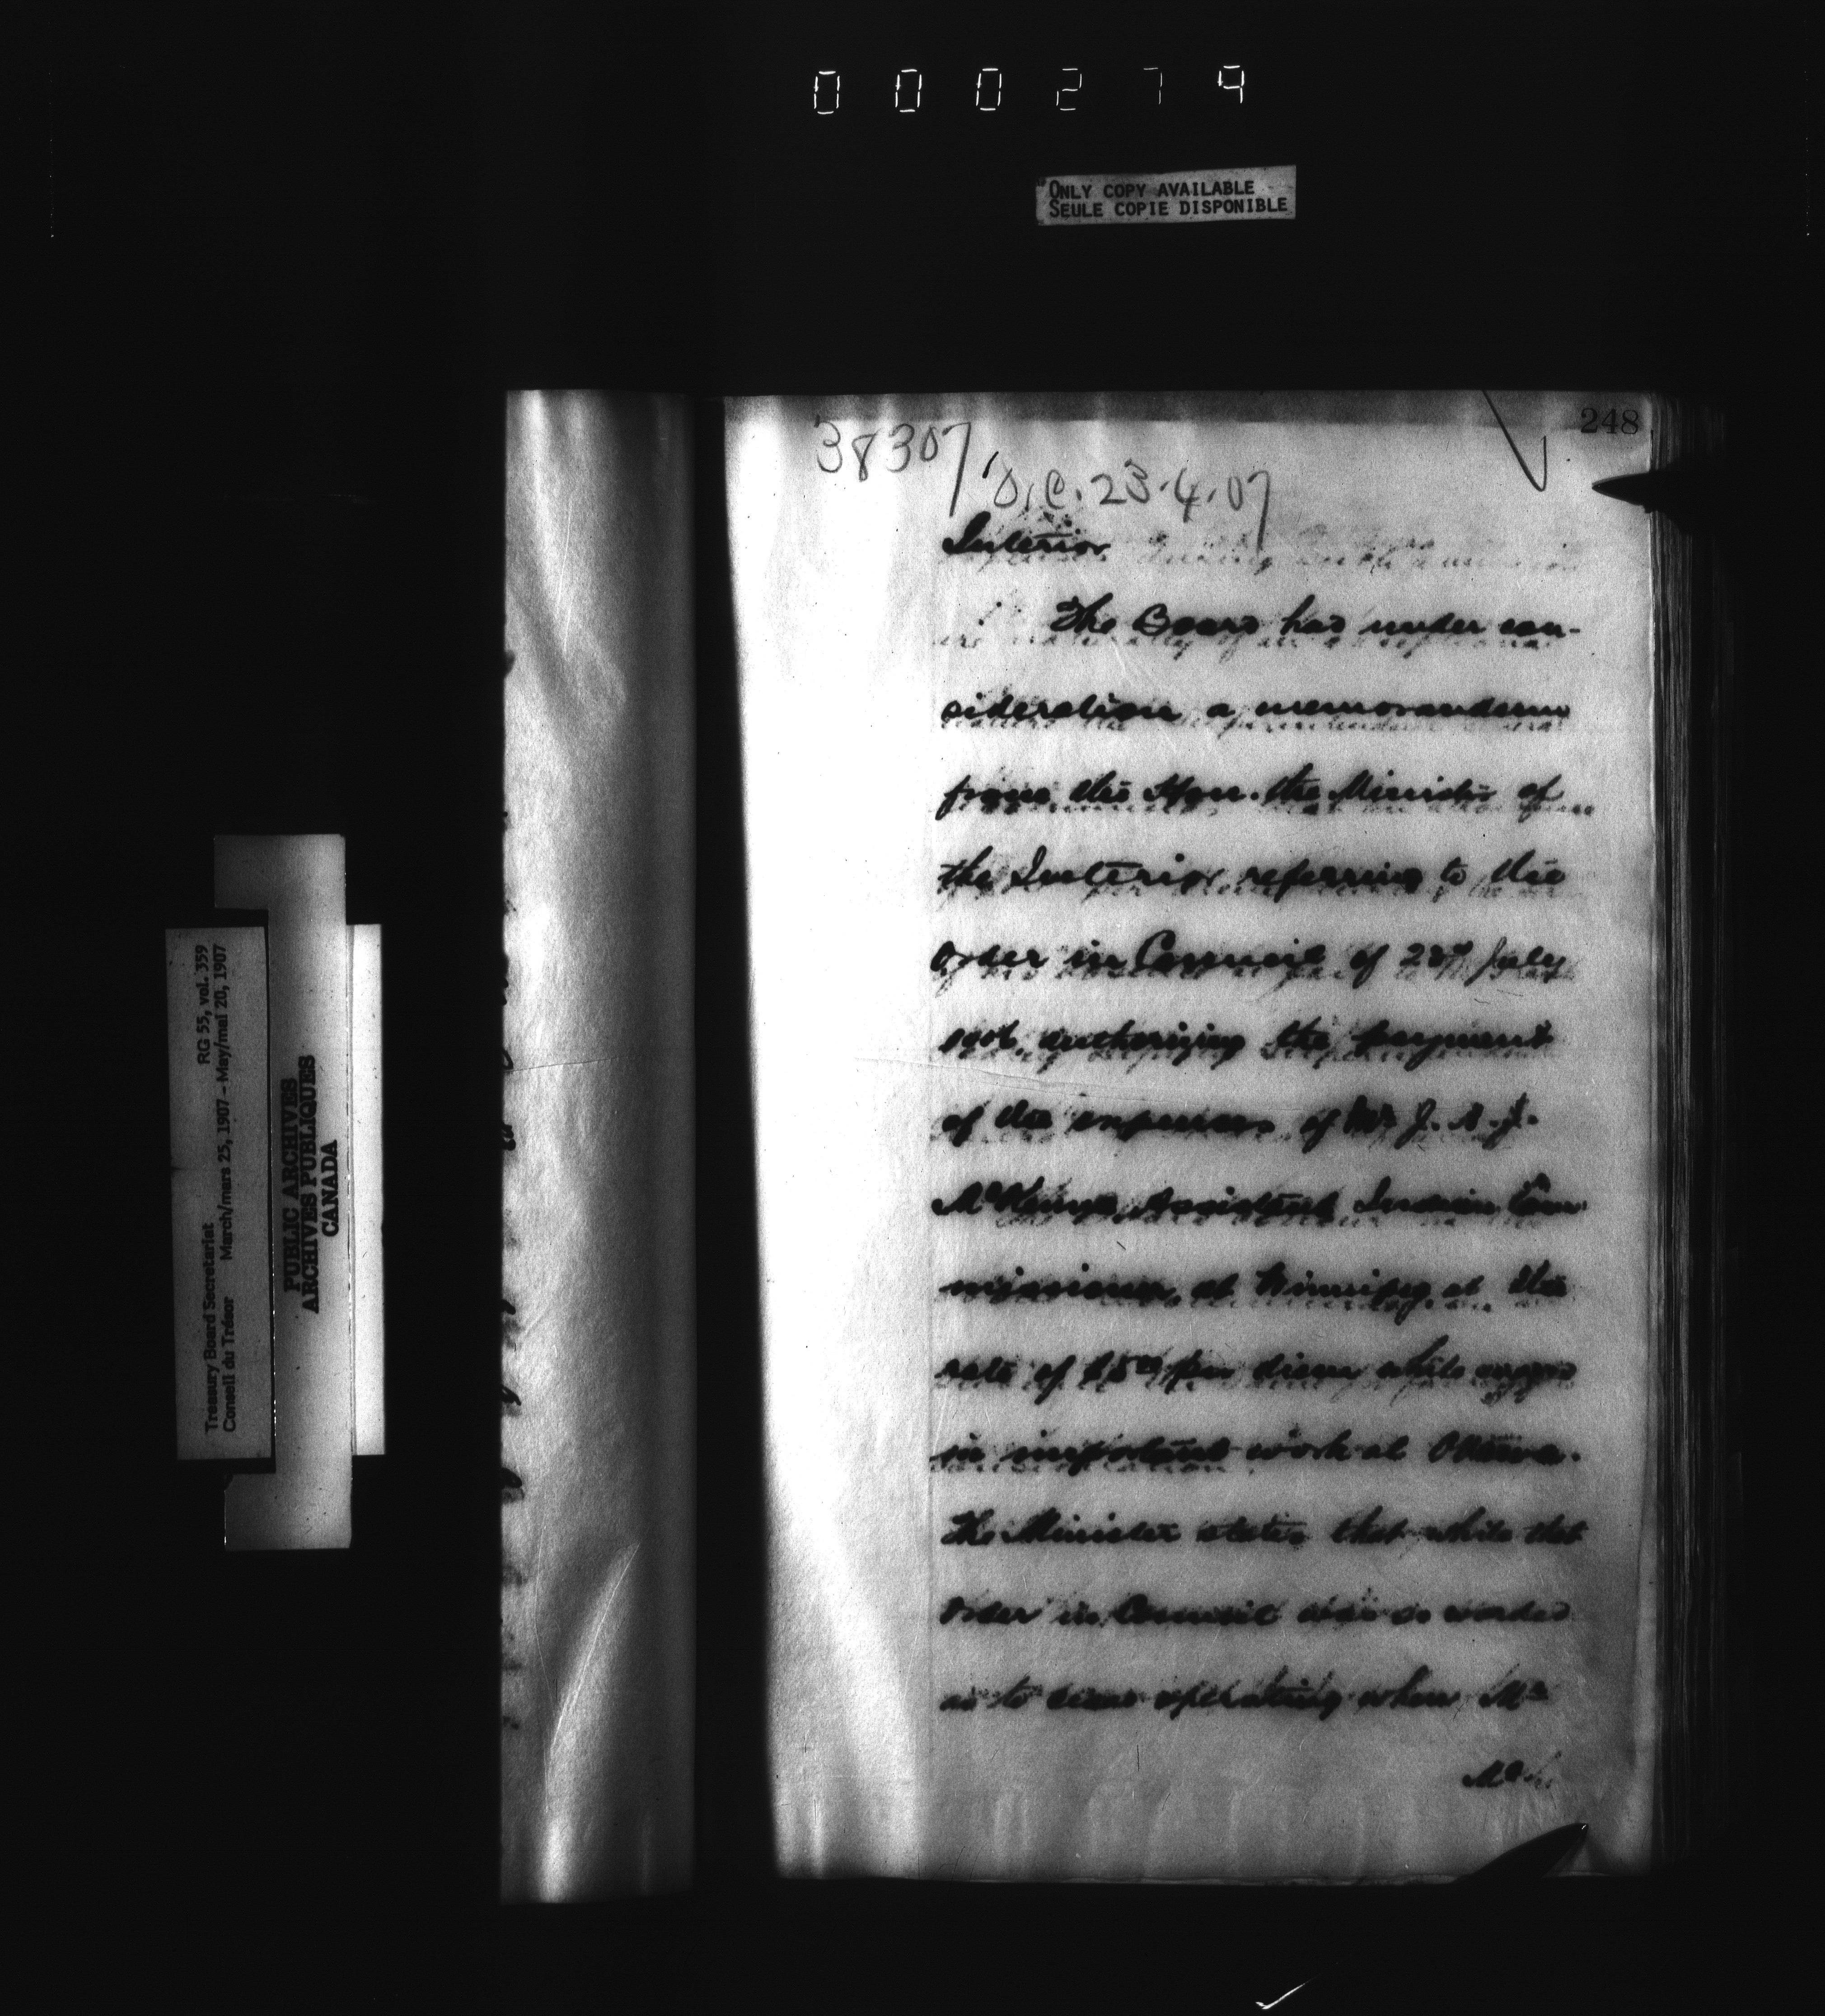 000279
ONLY COPY AVAILABLE
SEULE COPIE DISPONIBLE
248
38307
O.C. 23.4.07
Interior
The Board had under con-
sideration a memorandum
from the Hon. the Minister of
the Interior referring to the
Order in Council of 23rd July
authorizing the payment
of the expenses of Mr J. A. J.
McKenna, Assistant Indian Com
missioner, at Winnipeg at the
rate of $5.00 per diem while engaged
in important work at Ottawa.
The Minister states that while that
Order in Council was so worded
as to cease operating when Mr
McK
Treasury Board Secretariat RG 55, vol. 359
Conseil du Trésor March/mars 25, 1907 - May/mai 20, 1907
PUBLIC ARCHIVES
ARCHIVES PUBLIQUES
CANADA